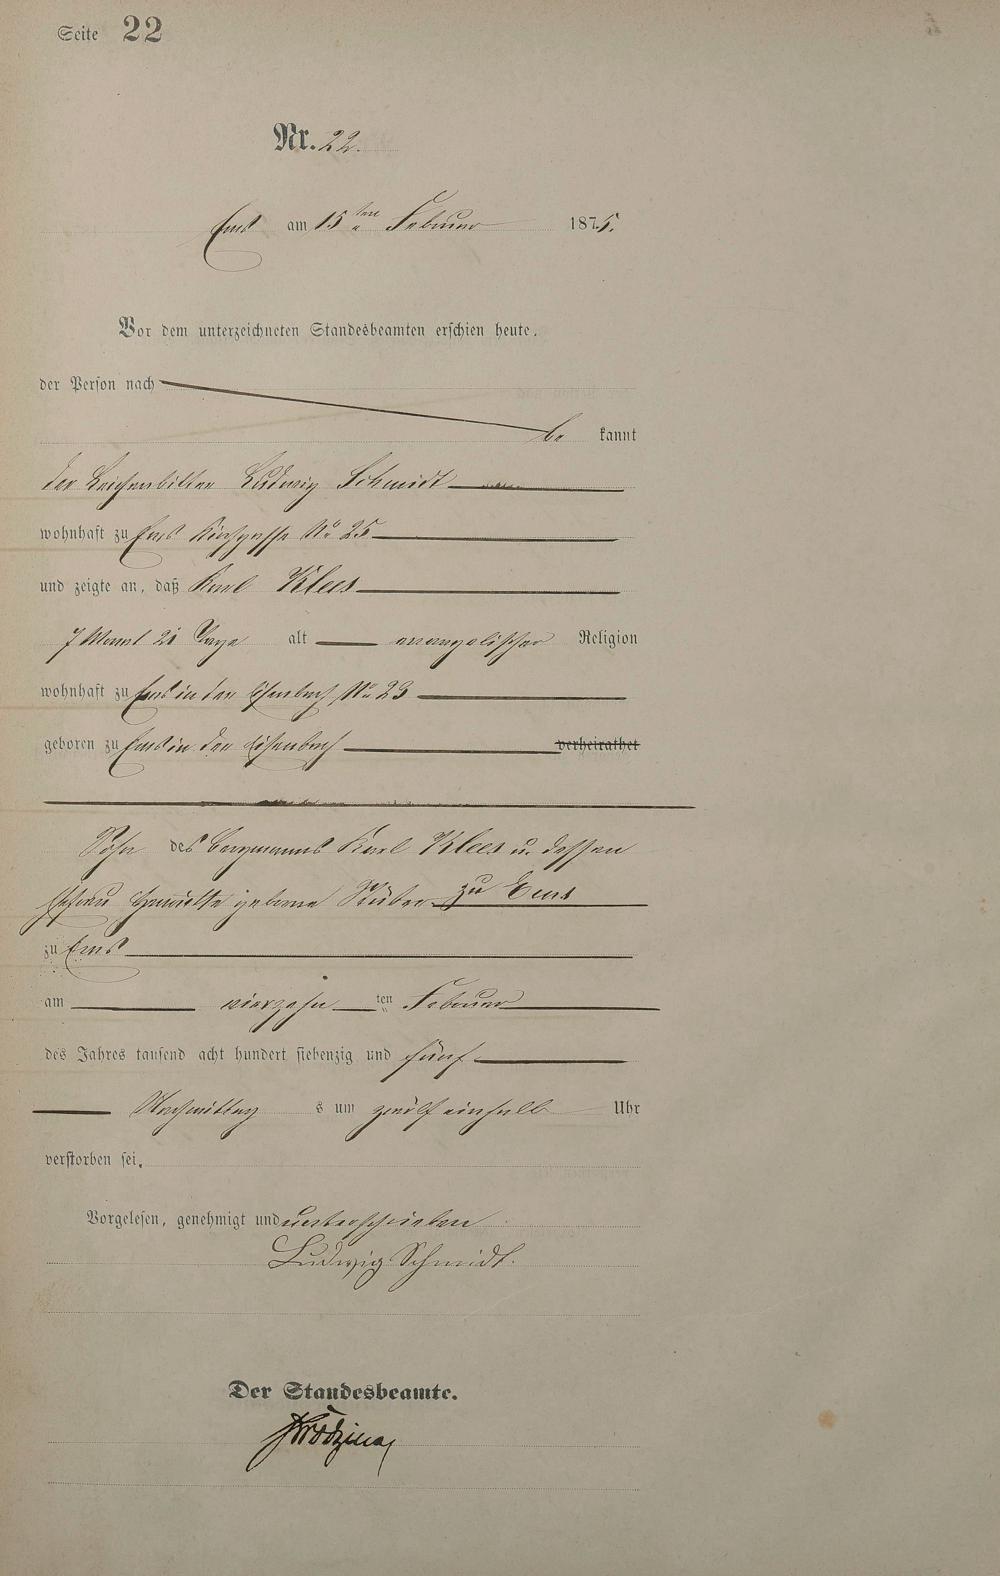 Seite 22
Nr. 22.
Ems am 15ten Februar 1875.
Vor dem unterzeichneten Standesbeamten erschien heute,
der Person nach
be kannt
der Leichenbitter Ludwig Schmidt
wohnhaft zu Ems Kirchgasse No 25
und zeigte an, daß Karl Klees
7 Monat 21 Tage alt evangelischer Religion
wohnhaft zu Ems in der Eisenbach No 23
geboren zu Ems in der Eisenbach verheirathet
Sohn des Bergmanns Karl Klees u. dessen
Ehefrau geborne zu Ems
zu Ems
am vierzehn ten Februar
des Jahres tausend acht hundert siebenzig und fünf
Nachmittag s um zwölf einhalb Uhr
verstorben sei.
Vorgelesen, genehmigt und unterschrieben
Ludwig Schmidt.
Der Standesbeamte.